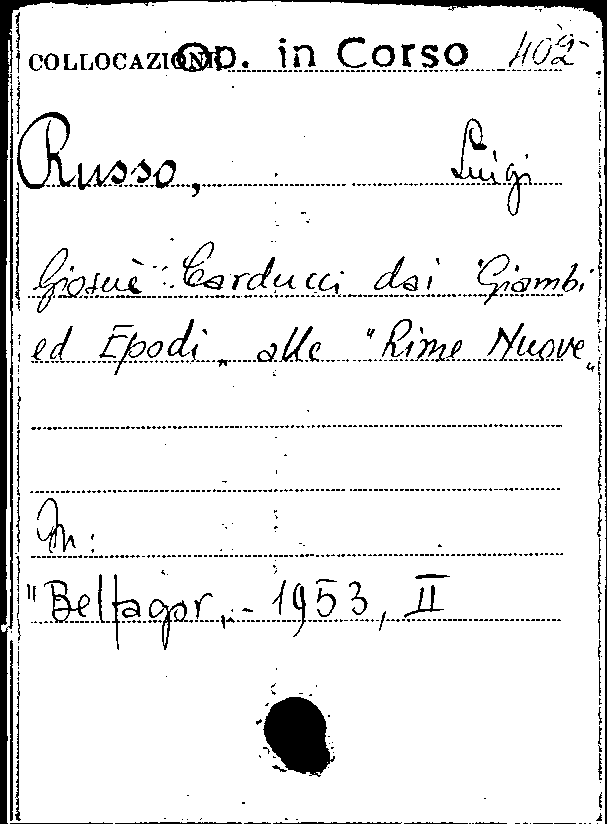 COLLOCAZIONE Op. in Corso 402
Russo, Luigi
Giosuè Carducci dai "Giambi
ed Epodi" alle "Rime Nuove"
In:
"Belfagor" - 1953, II